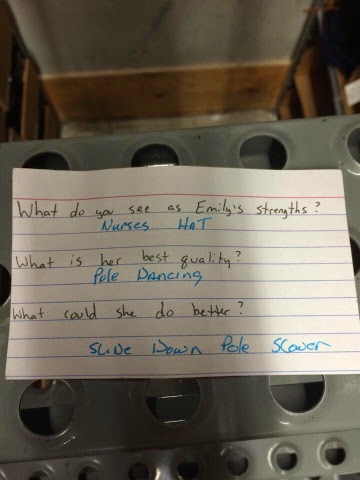 What do you see as Emily's strengths?
Nurses HAT
What is her best quality?
Pole Dancing
What could she do better?
Slide Down Pole Slower